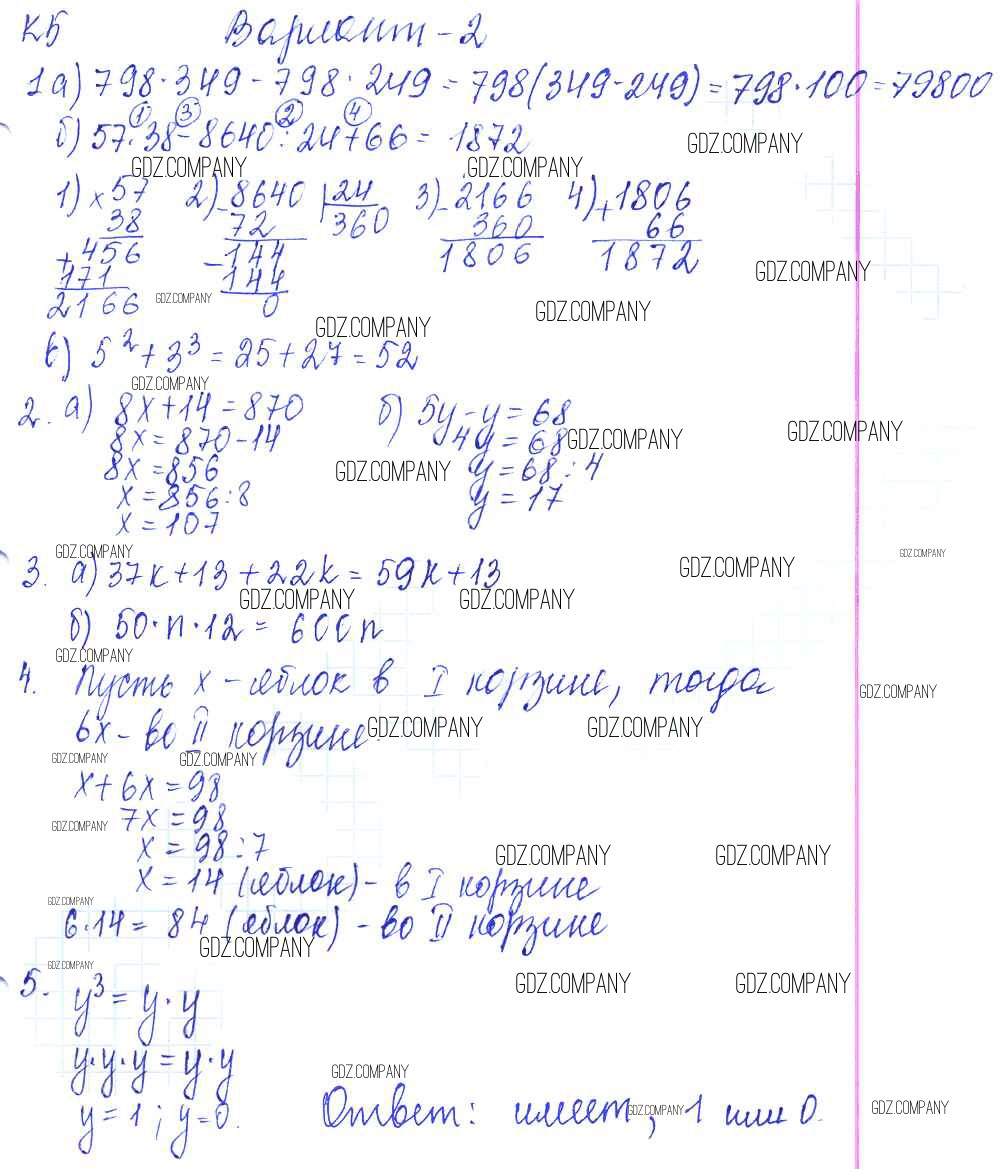 К5 Вариант-2
1а) 798·349-798·249=798(349-249)=798·100=79800
① ③ ② ④
б) 57·38-8640:24+66=1872
GDZ.COMPANY
GDZ.COMPANY GDZ.COMPANY
1) ×57 2) -8640 |24 3) -2166 4) +1806
38 72 360 360 66
+456 -144 1806 1872
171 144
2166 0
GDZ.COMPANY
GDZ.COMPANY
GDZ.COMPANY
GDZ.COMPANY
в) 5²+3³=25+27=52
GDZ.COMPANY
2. а) 8x+14=870 б) 5y-y=68
8x=870-14 4y=68
GDZ.COMPANY GDZ.COMPANY
8x=856 y=68:4
GDZ.COMPANY
x=856:8 y=17
x=107
GDZ.COMPANY GDZ.COMPANY
3. а) 37k+13+22k=59k+13
GDZ.COMPANY
GDZ.COMPANY GDZ.COMPANY
б) 50·n·12=600n
GDZ.COMPANY
4. Пусть x-яблок в I корзине, тогда
GDZ.COMPANY
6x-во II корзине.
GDZ.COMPANY GDZ.COMPANY
GDZ.COMPANY GDZ.COMPANY
x+6x=98
7x=98
GDZ.COMPANY
x=98:7
GDZ.COMPANY GDZ.COMPANY
x=14 (яблок)-в I корзине
GDZ.COMPANY
6·14=84 (яблок)-во II корзине
GDZ.COMPANY
GDZ.COMPANY
5. y³=y·y
GDZ.COMPANY GDZ.COMPANY
y·y·y=y·y
GDZ.COMPANY
y=1; y=0. Ответ: имеет, 1 или 0.
GDZ.COMPANY GDZ.COMPANY